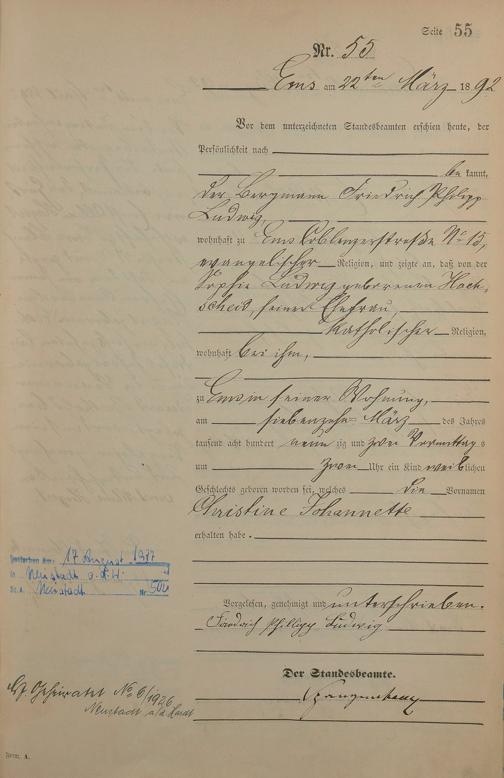 Seite 55
Nr. 55
Ems am 22ten März 1892
Vor dem unterzeichneten Standesbeamten erschien heute, der
Persönlichkeit nach
be kannt,
der Bergmann Friedrich Philipp
Ludwig,
wohnhaft zu Ems Coblenzerstraße No 15,
evangelischer Religion, und zeigte an, daß von der
Sophie Ludwig geborenen Hoch-
scheid, seiner Ehefrau,
katholischer Religion,
wohnhaft bei ihm,
zu Ems in seiner Wohnung,
am siebenzehn März des Jahres
tausend acht hundert neun zig und zwei Vormittags
um zwei Uhr ein Kind weiblichen
Geschlechts geboren worden sei, welches die Vornamen
Christine Johannette
erhalten habe.
Gestorben am: 17 August 1977
in Neustadt a.d.W.
St. A. Neustadt Nr. 502
Vorgelesen, genehmigt und unterschrieben.
Friedrich Philipp Ludwig
Der Standesbeamte.
Geheiratet No 6/1926
Neustadt a/d Hardt
Form. A.